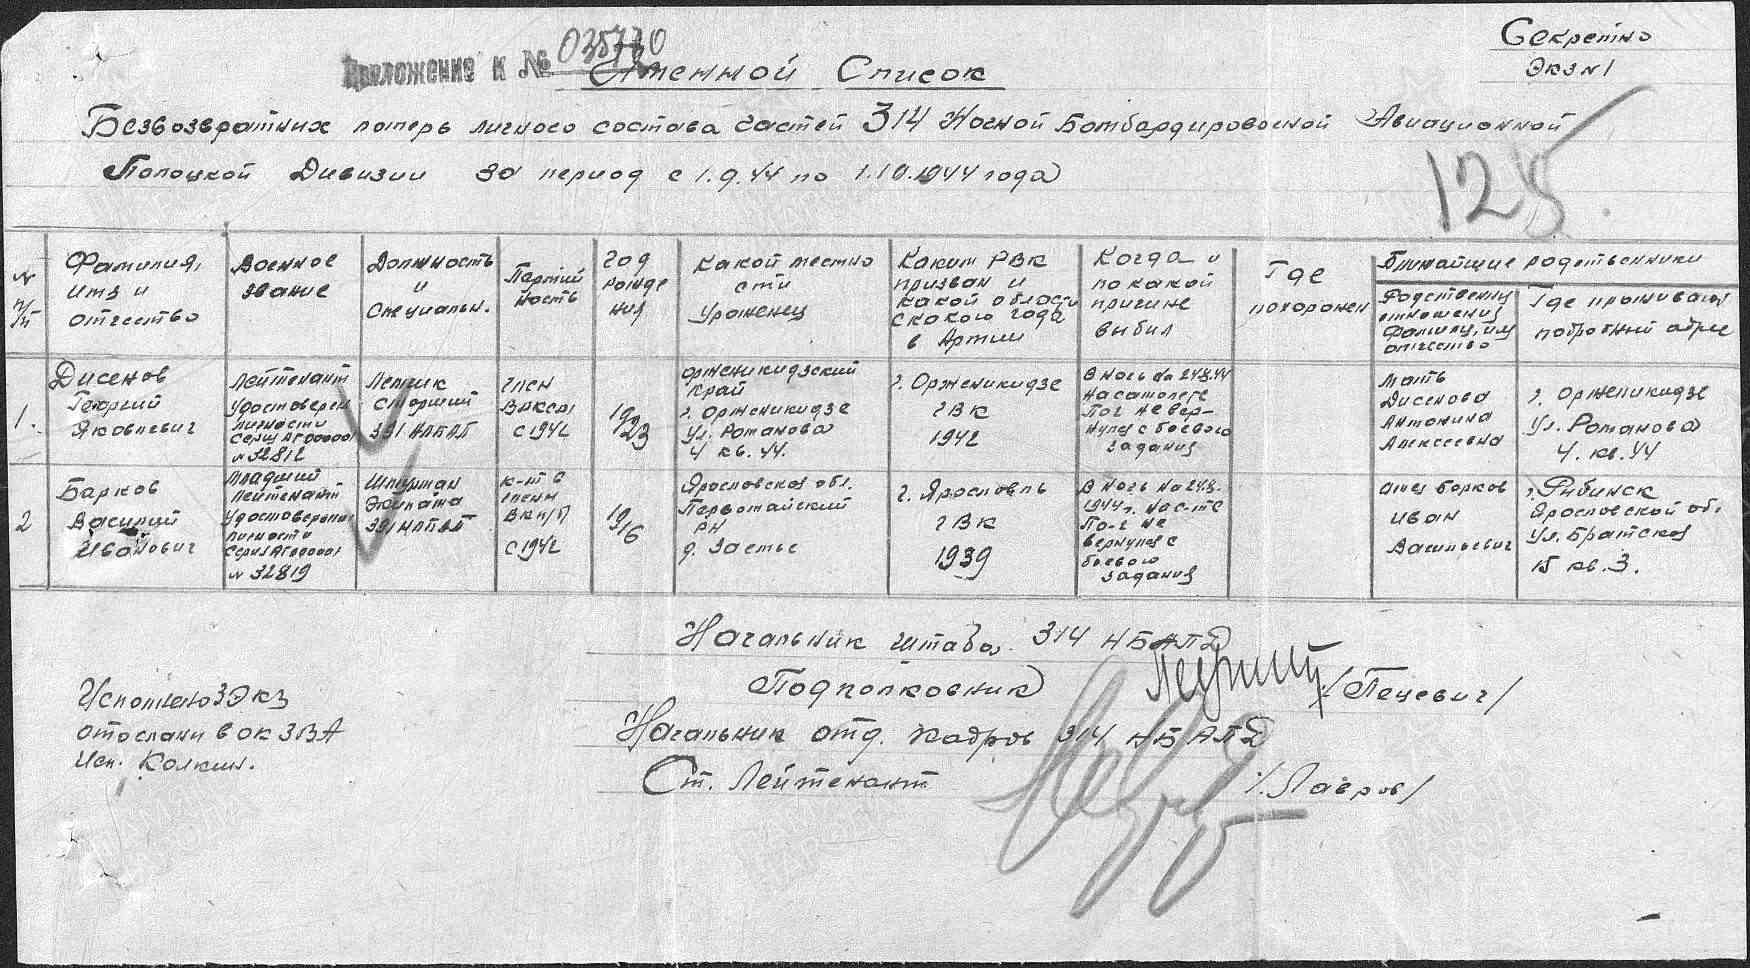 Секретно
Экз №1
Приложение к №
Именной Список
Безвозвратных потерь личного состава частей 314 Ночной Бомбардировочной Авиационной
Полоцкой Дивизии за период с 1.9.44 по 1.10.1944 года
125
№ п/п
Фамилия,
имя и
отчество
Военное
звание
Должность
и
специальн.
Партий
ность
год
рожде
ния
Какой местно
сти
уроженец
Каким РВК
призван и
какой област
с какого года
в Армии
Когда и
по какой
причине
выбыл
Где
похоронен
Ближайшие родственники
Родственные
отношения
Фамилия, имя
отчество
Где проживают
подробный адрес
1.
Дисенов
Георгий
Яковлевич
Лейтенант
удостоверен
личности
серия АГ 00001
№ 32812
Летчик
старший
391 НЛБАП
член
ВЛКСМ
с 1942
1923
Орженикидзский
край
г. Орженикидзе
ул. Романова
4 кв. 44.
г. Орженикидзе
ГВК
1942
В ночь на
на самолете
По-2 не вер-
нулся с боевого
задания
Мать
Дисенова
Антонина
Алексеевна
г. Орженикидзе
Ул. Романова
4. кв. 44
2
Барков
Василий
Иванович
Младший
лейтенант
Удостоверение
личности
серия АГ 00001
№ 32819
Штурман
Экипажа
391 НЛБАП
к-т в
члены
ВКП/б
с 1942
1916
Ярославская обл.
Первомайский
рн
г. Ярославль
ГВК
1939
В ночь на
1944 г. на с-те
По-2 не
вернулся с
боевого
задания
отец Борков
Иван
Васильевич
г. Рыбинск
Ярославской об.
Ул. Братская
15 кв. 3.
Начальник штаба 314 НБАПД
Подполковник /Пецевич/
Начальник отд. кадров 314 НБАПД
Ст. Лейтенант /Лавров/
Исполнено 3 экз
отосланы в ОК 3ВА
Исп. Колкин.